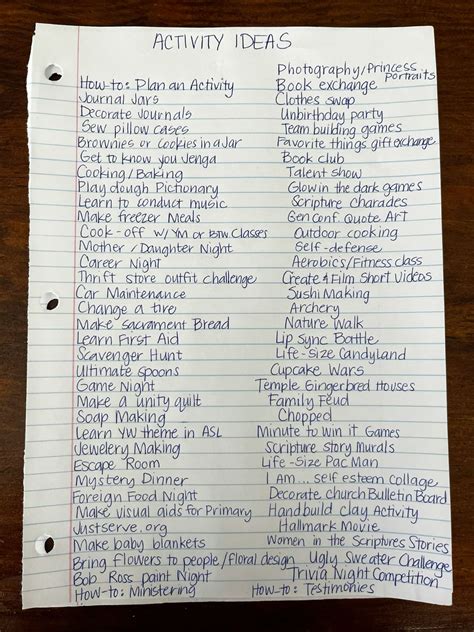 ACTIVITY IDEAS
How-to: Plan an Activity
Journal Jars
Decorate Journals
Sew pillow cases
Brownies or Cookies in a Jar
Get to know you Jenga
Cooking/Baking
Play dough Pictionary
Learn to conduct music
Make freezer Meals
Cook-off w/YM or Btw. Classes
Mother/Daughter Night
Career Night
Thrift store outfit challenge
Car Maintenance
Change a tire
Make sacrament Bread
Learn First Aid
Scavenger Hunt
Ultimate spoons
Game Night
Make a unity quilt
Soap Making
Learn YW theme in ASL
Jewelery Making
Escape Room
Mystery Dinner
Foreign Food Night
Make visual aids for Primary
Justserve.org
Make baby blankets
Bring flowers to people/floral design
Bob Ross paint Night
How-to: Ministering
Photography/Princess portraits
Book exchange
Clothes swap
Unbirthday party
Team building games
Favorite things gift exchange
Book club
Talent show
Glow in the dark games
Scripture charades
Gen Conf. Quote Art
Outdoor cooking
Self-defense
Aerobics/Fitness class
Create & Film Short Videos
Sushi Making
Archery
Nature Walk
Lip sync Battle
Life-Size Candyland
Cupcake Wars
Temple Gingerbred Houses
Family Feud
Chopped
Minute to Win it Games
Scripture story Murals
Life-Size Pac Man
I am... self esteem collage
Decorate church Bulletin Board
Hand build clay Activity
Hallmark Movie
Women in the Scriptures Stories
Ugly Sweater Challenge
Trivia Night Competition
How-to: Testimonies